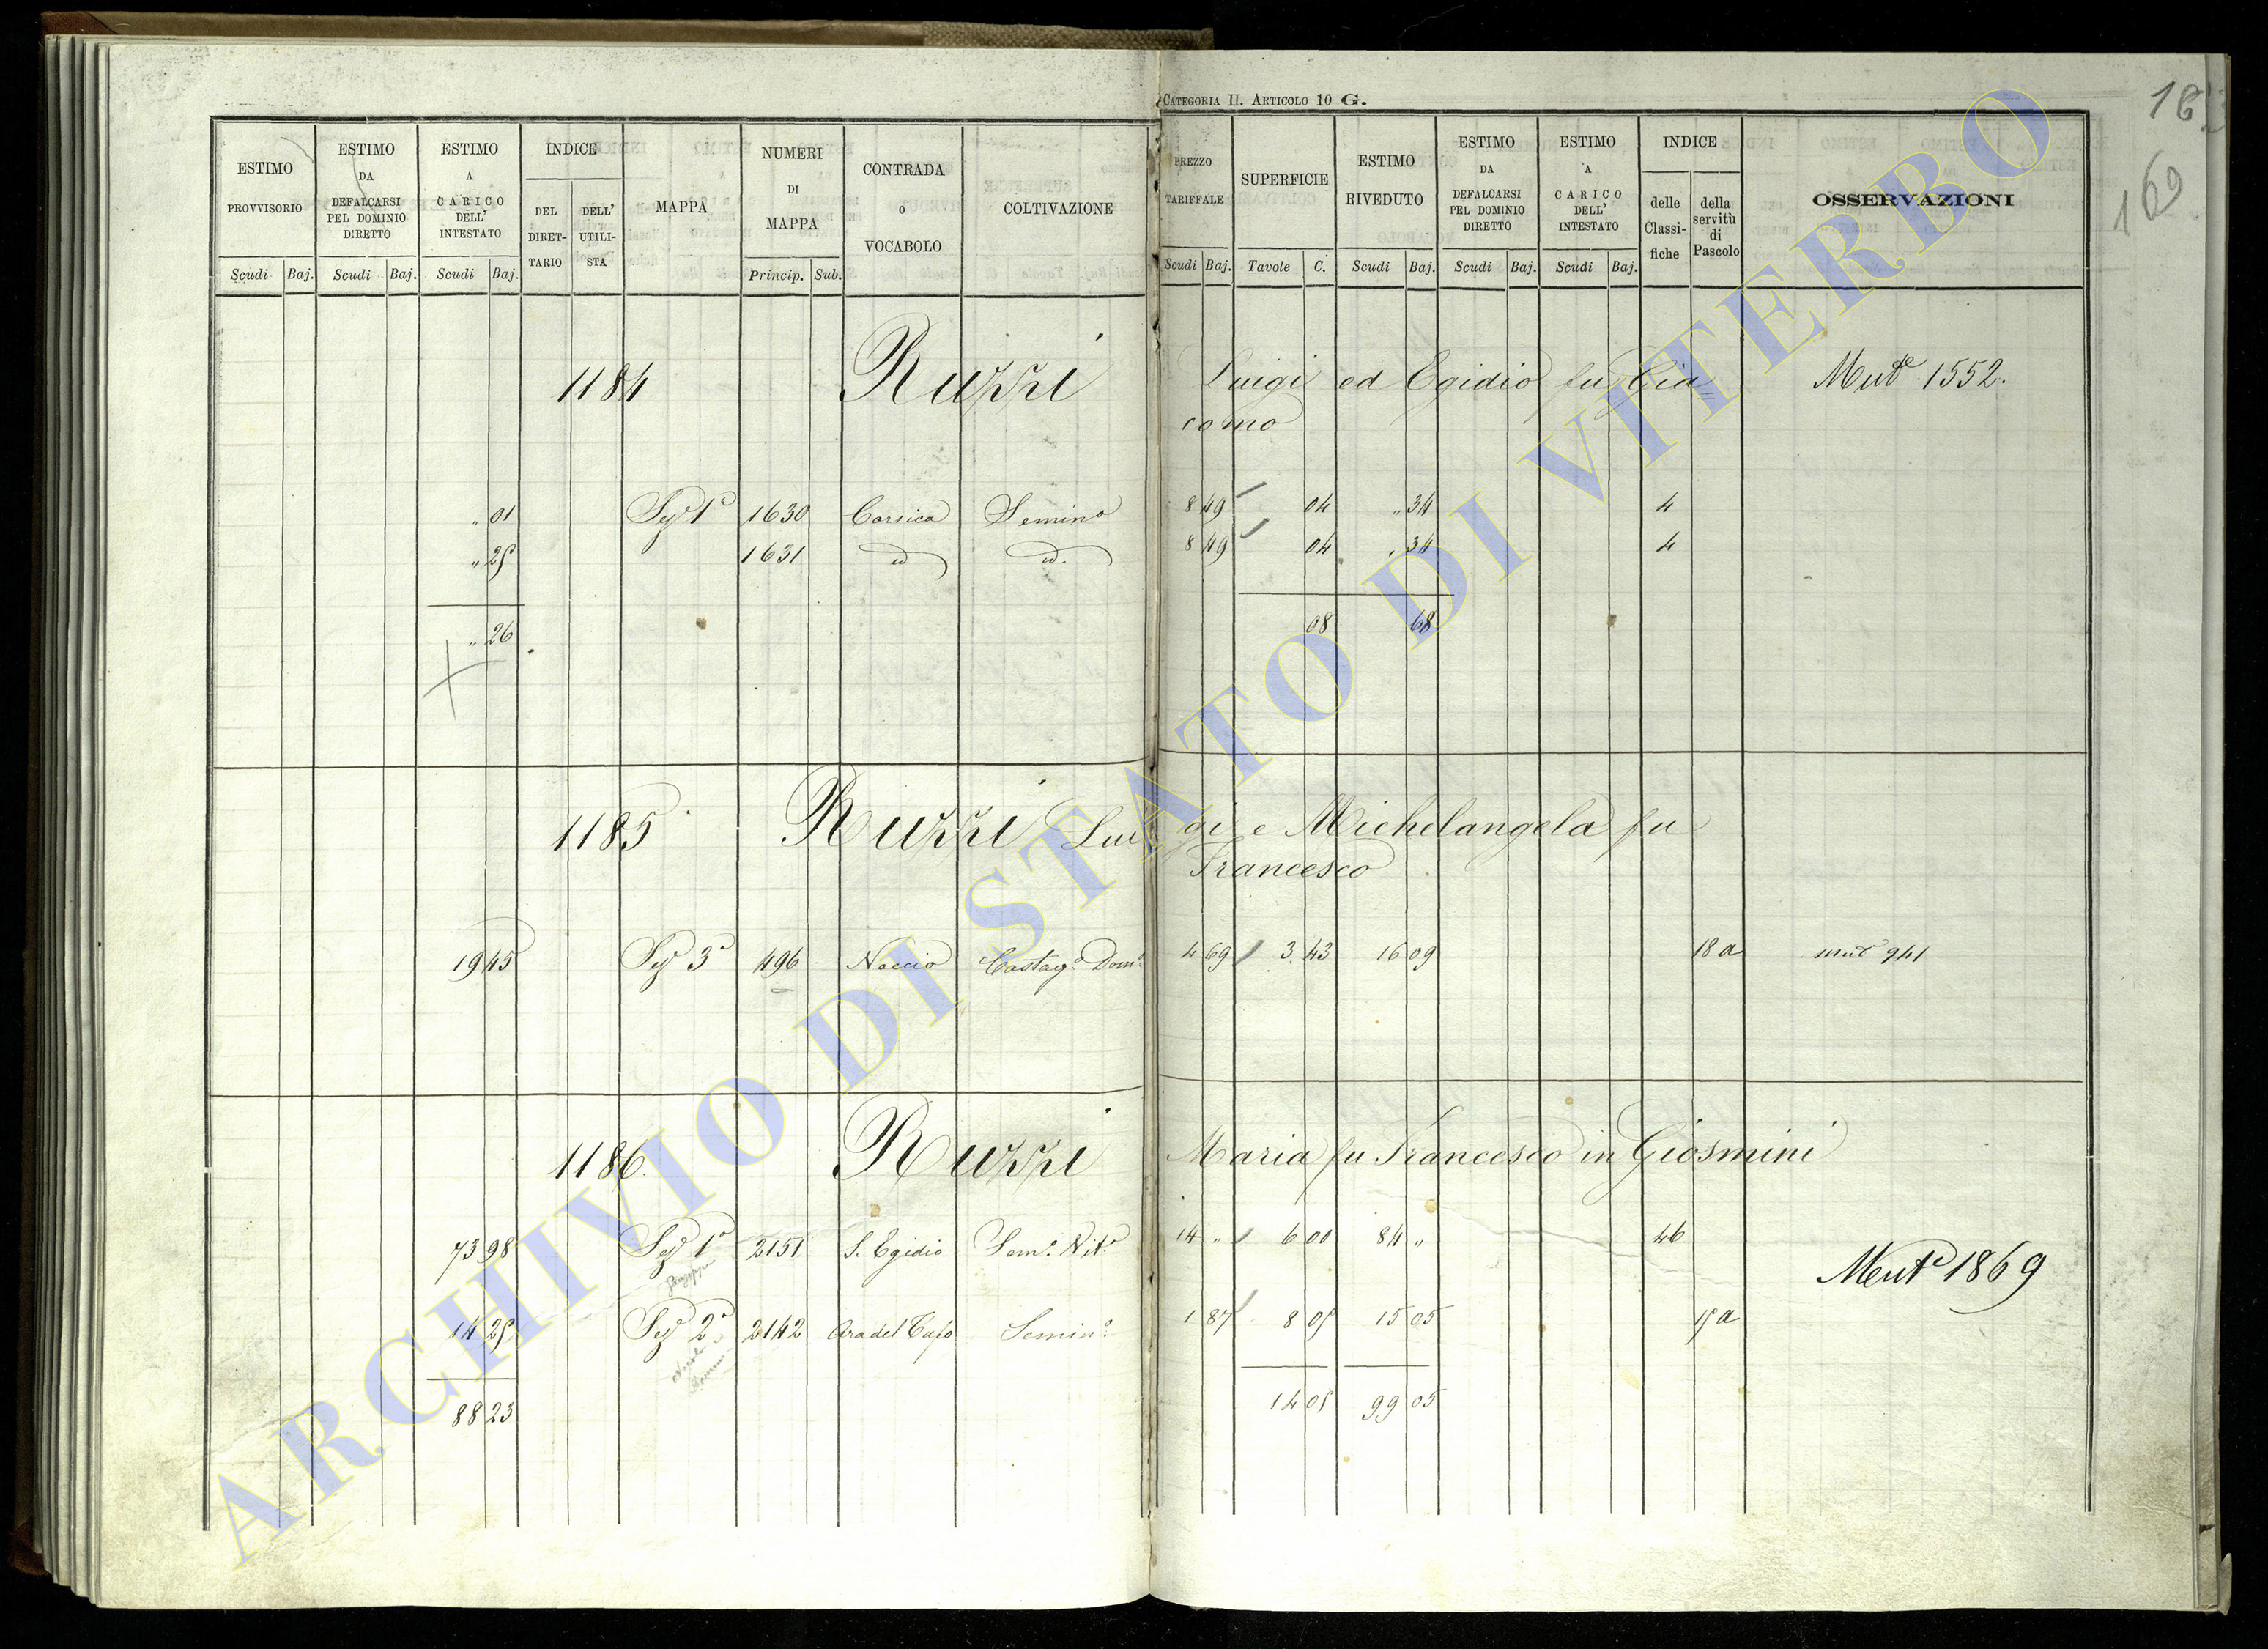 CATEGORIA II. ARTICOLO 10 G.
169
ESTIMO PROVVISORIO
ESTIMO DA DEFALCARSI PEL DOMINIO DIRETTO
ESTIMO A CARICO DELL' INTESTATO
INDICE
DEL DIRET-TARIO
DELL' UTILI-STA
MAPPA
NUMERI DI MAPPA
CONTRADA o VOCABOLO
COLTIVAZIONE
PREZZO TARIFFALE
SUPERFICIE
ESTIMO RIVEDUTO
ESTIMO DA DEFALCARSI PEL DOMINIO DIRETTO
ESTIMO A CARICO DELL' INTESTATO
INDICE
delle Classi-fiche
della servitù di Pascolo
OSSERVAZIONI
Scudi Baj. Scudi Baj. Scudi Baj. Princip. Sub. Scudi Baj. Tavole C. Scudi Baj. Scudi Baj. Scudi Baj.
1184 Ruzzi Luigi ed Egidio fu Gia= Mut.e 1552.
como
„ 01 Sez 1a 1630 Corsica Semino 8 49 04 „ 34 4
„ 25 1631 id id. 8 49 04 „ 34 4
„ 26 08 68
1185 Ruzzi Luigi e Michelangela fu
Francesco
19 45 Sez 3a 496 Noccio Castag.o Dom.o 4 69 3.43 16 09 18 a mut 941
1186. Ruzzi Maria fu Francesco in Giosmini
73 98 Sez 1a 2151 S. Egidio Sem.o Vit.o 14 „ 6 00 84 „ 46
Mut.e 1869
14 25 Sez 2a 2142 Ara del Tufo Semin.o 1 87 8 05 15 05 15 a
88 23 14 05 99 05
ARCHIVIO DI STATO DI VITERBO